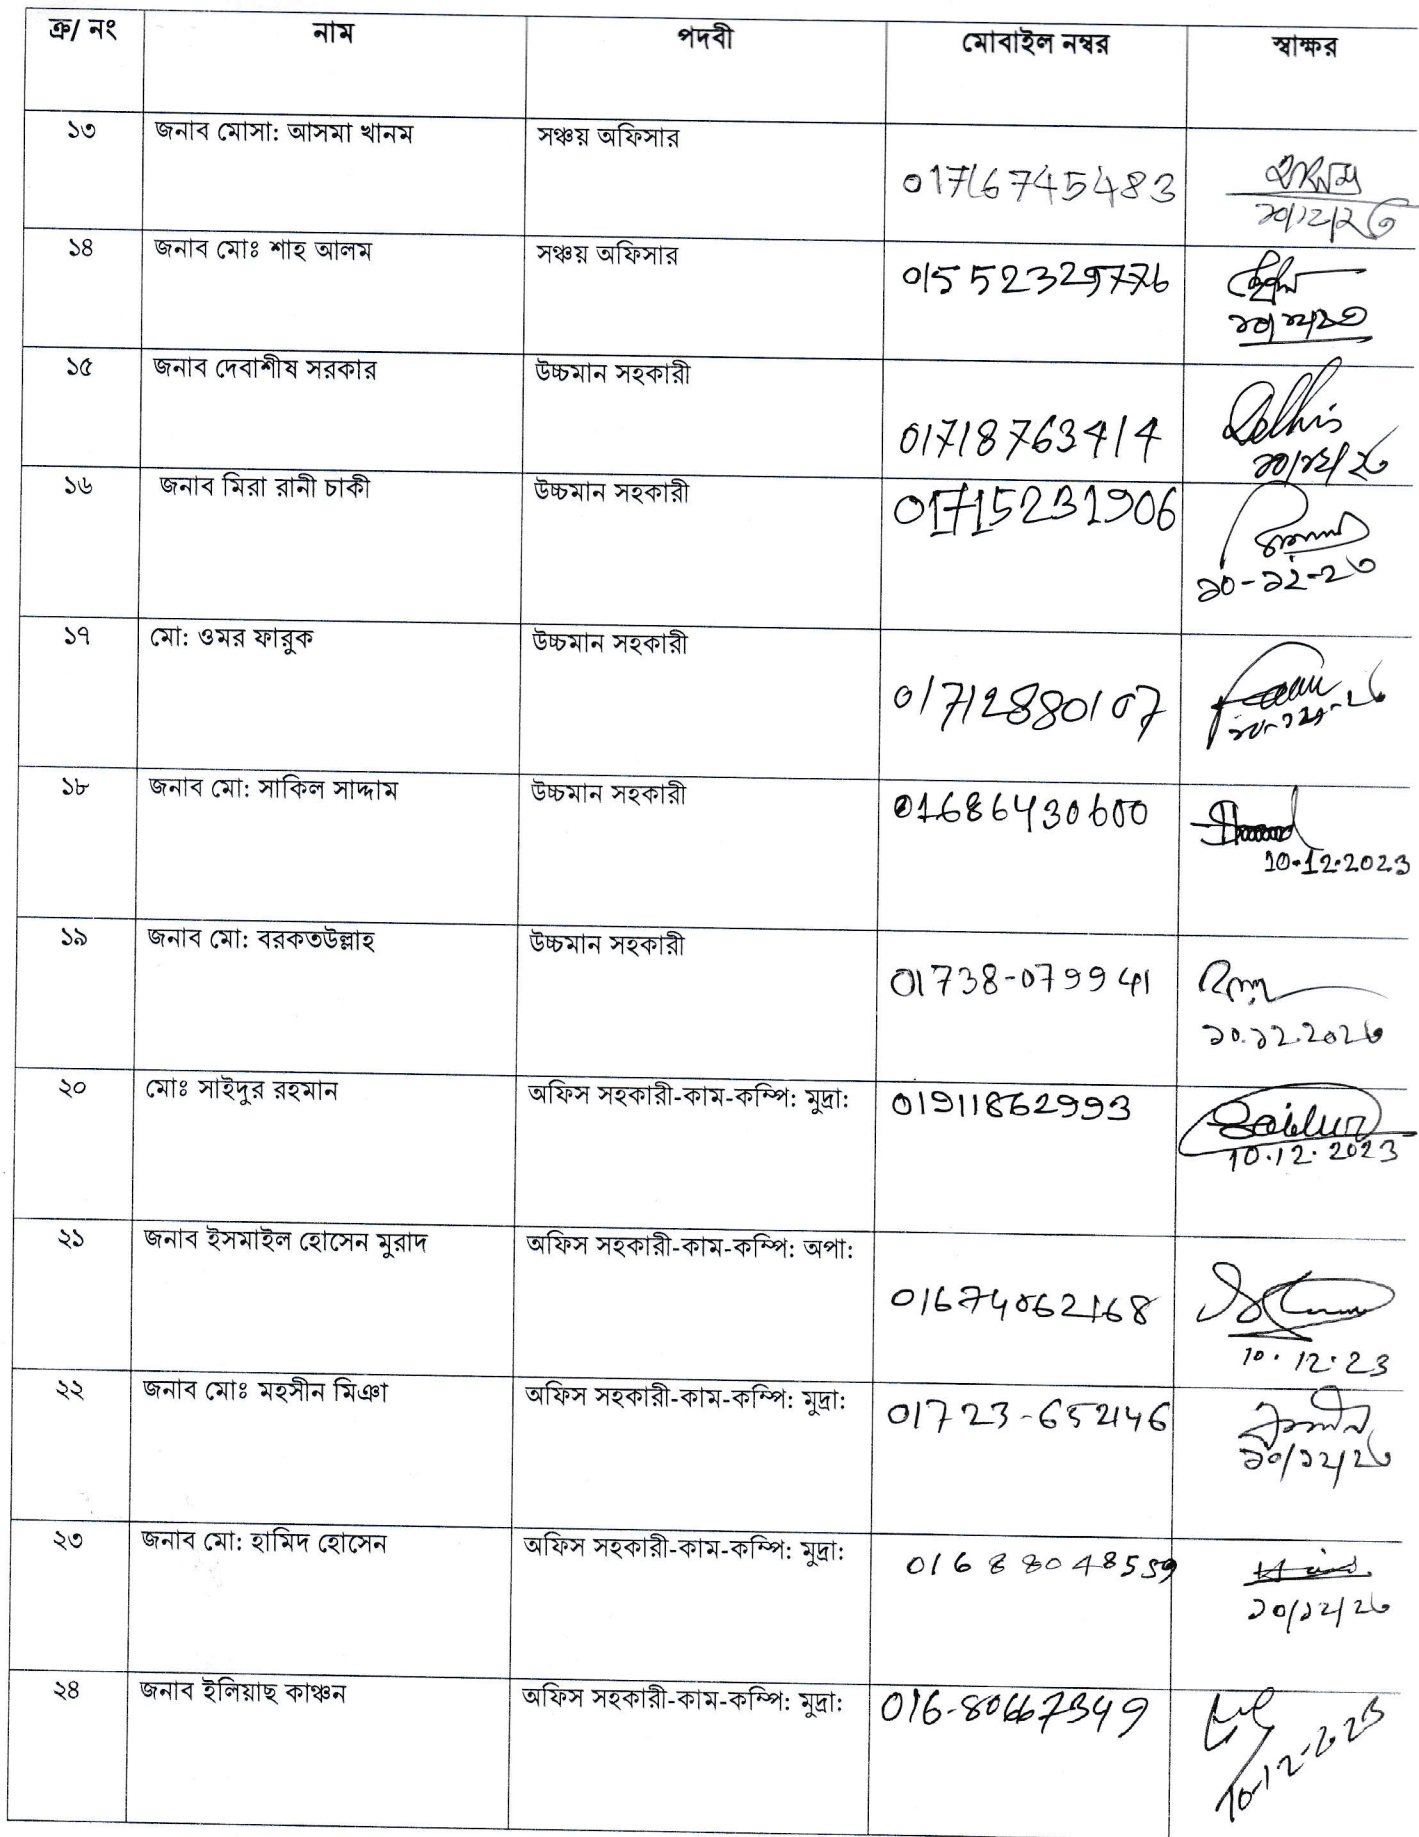 ক্র/ নং নাম পদবী মোবাইল নম্বর স্বাক্ষর
১৩ জনাব মোসা: আসমা খানম সঞ্চয় অফিসার
01716745483
১০/১২/২৩
১৪ জনাব মোঃ শাহ আলম সঞ্চয় অফিসার 01552329776
১০/১২/২৩
১৫ জনাব দেবাশীষ সরকার উচ্চমান সহকারী
01718763414
১০/১২/২৩
১৬ জনাব মিরা রানী চাকী উচ্চমান সহকারী 01715231906
১০-১২-২৩
১৭ মো: ওমর ফারুক উচ্চমান সহকারী
01712880107
১০-১২-২৩
১৮ জনাব মো: সাকিল সাদ্দাম উচ্চমান সহকারী 01686430600
10.12.2023
১৯ জনাব মো: বরকতউল্লাহ উচ্চমান সহকারী
01738-079941
১০.১২.২০২৩
২০ মোঃ সাইদুর রহমান অফিস সহকারী-কাম-কম্পি: মুদ্রা: 01911862993 Saidur
10.12.2023
২১ জনাব ইসমাইল হোসেন মুরাদ অফিস সহকারী-কাম-কম্পি: অপা:
01674062168
10.12.23
২২ জনাব মোঃ মহসীন মিঞা অফিস সহকারী-কাম-কম্পি: মুদ্রা: 01723-652146
১০/১২/২৩
২৩ জনাব মো: হামিদ হোসেন অফিস সহকারী-কাম-কম্পি: মুদ্রা: 01688048559
১০/১২/২৩
২৪ জনাব ইলিয়াছ কাঞ্চন অফিস সহকারী-কাম-কম্পি: মুদ্রা: 016-80667349
10-12-2023